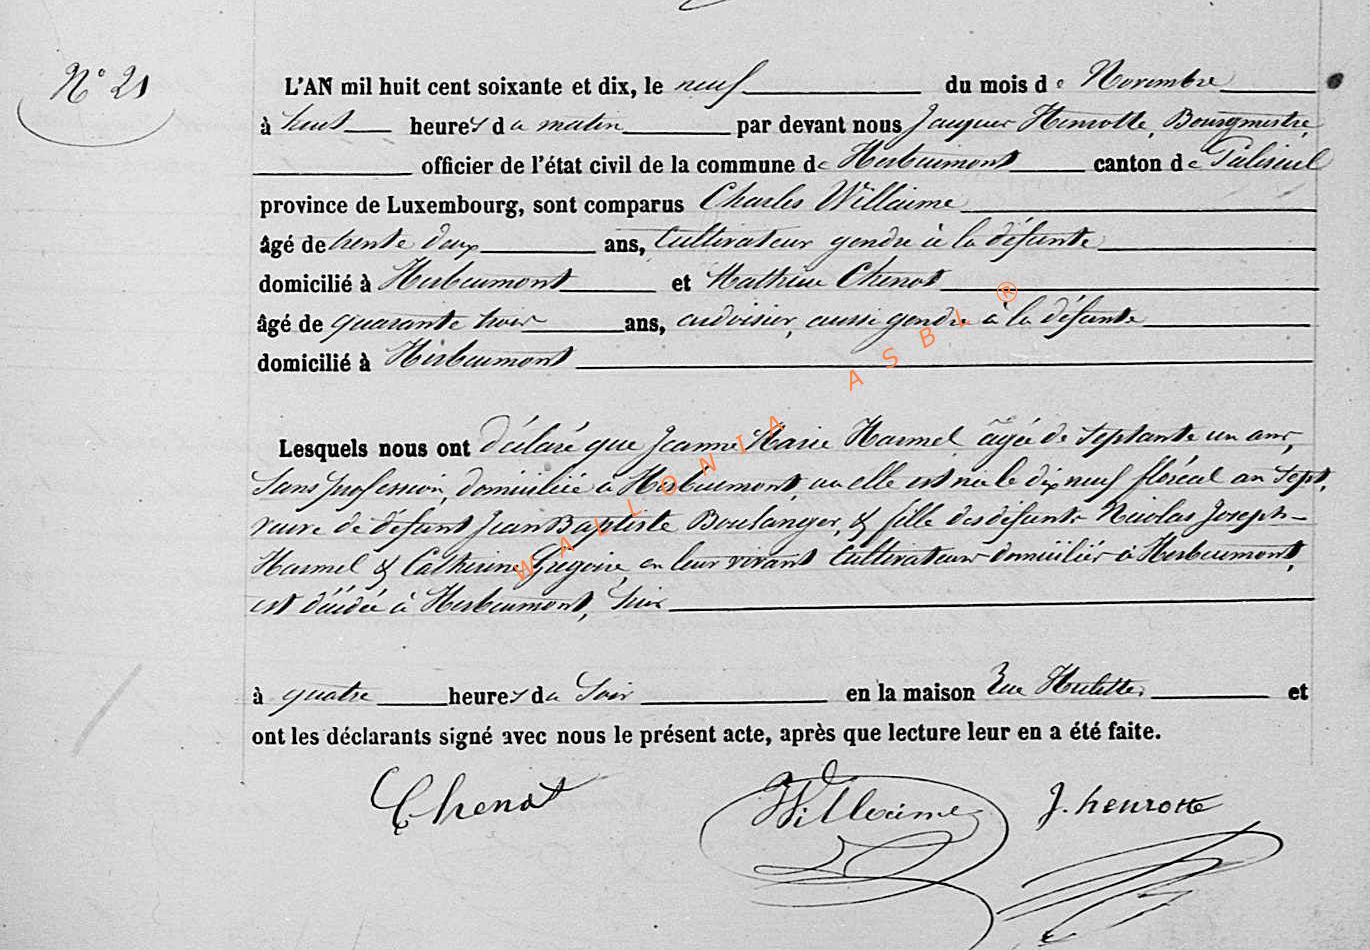 N° 21
L'AN mil huit cent soixante et dix, le neuf du mois de Novembre
à huit heures du matin par devant nous Jacques Henrotte, Bourgmestre,
officier de l'état civil de la commune de Herbeumont canton de Paliseul
province de Luxembourg, sont comparus Charles Willaime
âgé de trente deux ans, Cultivateur gendre à la défunte
domicilié à Herbeumont et Mathieu Chenot
âgé de quarante trois ans, ardoisier, aussi gendre à la défunte
domicilié à Herbeumont
Lesquels nous ont déclaré que Jeanne Marie Harmel âgée de septante un ans,
sans profession, domiciliée à Herbeumont, où elle est née le dix neuf floréal an Sept,
veuve de défunt Jean Baptiste Boulanger, & fille des défunts Nicolas Joseph
Harmel & Catherine Grégoire, en leur vivant Cultivateurs domiciliés à Herbeumont,
est décédée à Herbeumont, hier
à quatre heures du Soir en la maison Rue et
ont les déclarants signé avec nous le présent acte, après que lecture leur en a été faite.
Chenot Willaime J. henrotte
WALLONIA ASBL ®